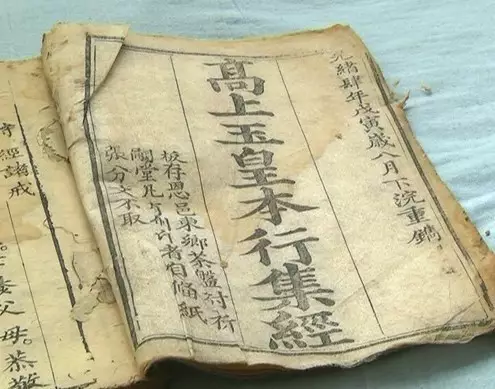 光緒肆年戊寅歲八月下浣重鐫
髙上玉皇本行集經
板存恩邑東鄉茶盤村衍
嗣堂凡有印者自俻紙
張分文不取
經諸戒
父母。恭敬